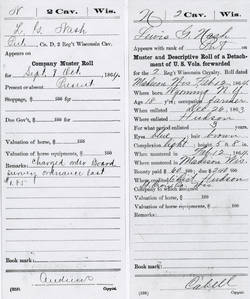 N 2 Cav. Wis.
L. G. Nash
Pvt, Co. D, 2 Reg't Wisconsin Cav.
Company Muster Roll
for Sept & Oct, 1864.
Present or absent Present
Stoppage, $ 100 for
Due Gov't, $ 100 for
Valuation of horse, $ 100
Valuation of horse equipments, $ 100
Remarks:
Book mark:
Andrews
(358) Copyist.
N 2 Cav. Wis.
Lewis G. Nash
Appears with rank of Pvt on
Muster and Descriptive Roll of a Detachment of U. S. Vols. forwarded
for the 2 Reg't Wis. Cavalry. Roll dated
Madison Wis Feb 1864.
Where born Wyoming N.Y.
Age 18 y'rs; occupation Farmer
When enlisted Dec 26, 1863.
Where enlisted Hudson
For what period enlisted 3 years.
Eyes Blue; hair Brown
Complexion light; height 5 ft. 8 in.
When mustered in Feb 12, 1864.
Where mustered in Madison Wis.
Bounty paid $ 60 100; due $ 240 100
Where credited Hudson
Company to which assigned
Valuation of horse, $ 100
Valuation of horse equipments, $ 100
Remarks:
Book mark:
Cabell
(339) Copyist.